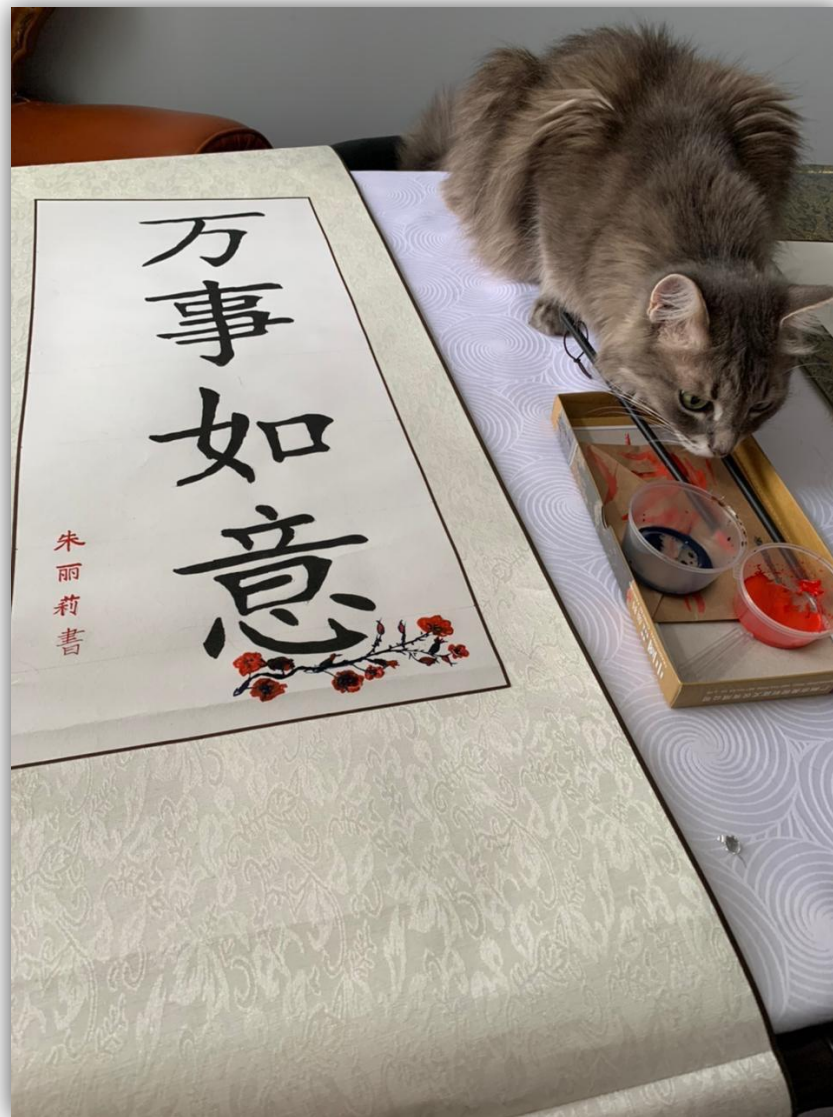 万事如意
朱丽莉書